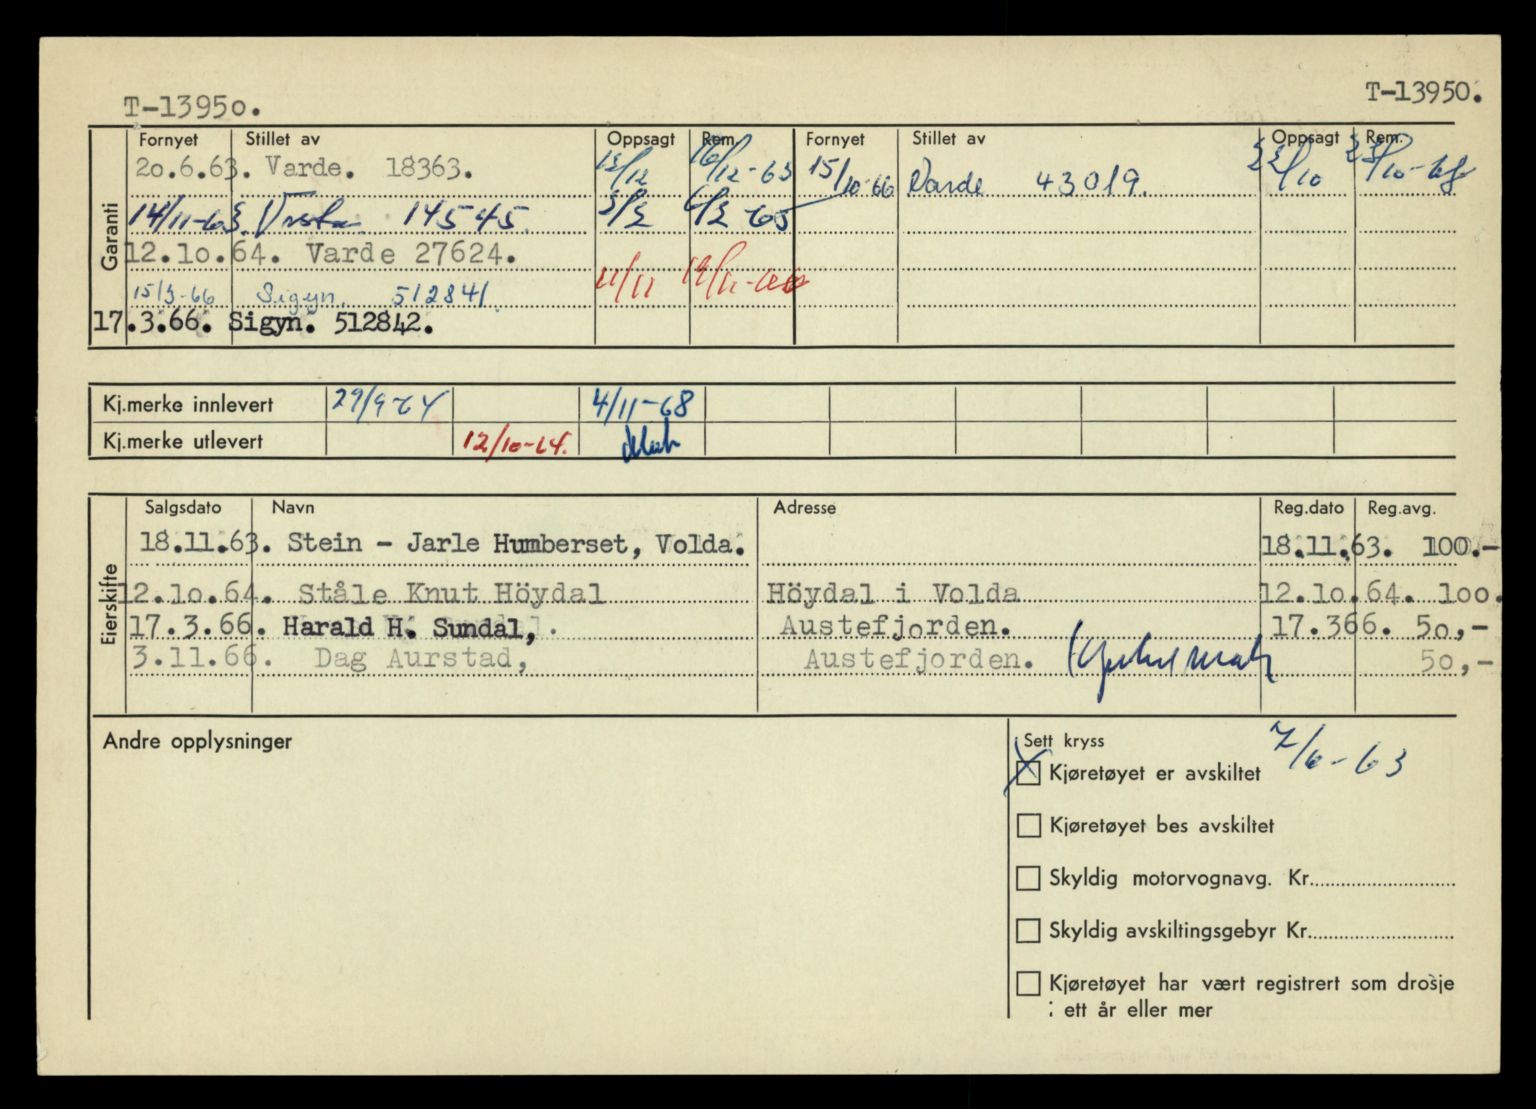 T-13950.
T-13950.
Garanti
Fornyet Stillet av Oppsagt Rem. Fornyet Stillet av Oppsagt Rem.
20.6.63. Varde. 18363. 12/12 16/12-63 15/10-66 Varde 43019. 22/10
14/11-63. 14545. 6/2-65
12.10.64. Varde 27624.
15/3-66 Sigyn. 512841 11/11
17.3.66. Sigyn. 512842.
Kj.merke innlevert 29/9-64 4/11-68
Kj.merke utlevert 12/10-64.
Eierskifte
Salgsdato Navn Adresse Reg.dato Reg.avg.
18.11.63. Stein - Jarle Humberset, Volda. 18.11.63. 100.-
12.10.64. Ståle Knut Höydal Höydal i Volda 12.10.64. 100.
17.3.66. Harald H. Sundal, Austefjorden. 17.366. 50,-
3.11.66. Dag Aurstad, Austefjorden. 50,-
Andre opplysninger
Sett kryss 7/6-63
Kjøretøyet er avskiltet
Kjøretøyet bes avskiltet
Skyldig motorvognavg. Kr.
Skyldig avskiltingsgebyr Kr.
Kjøretøyet har vært registrert som drosje
i ett år eller mer